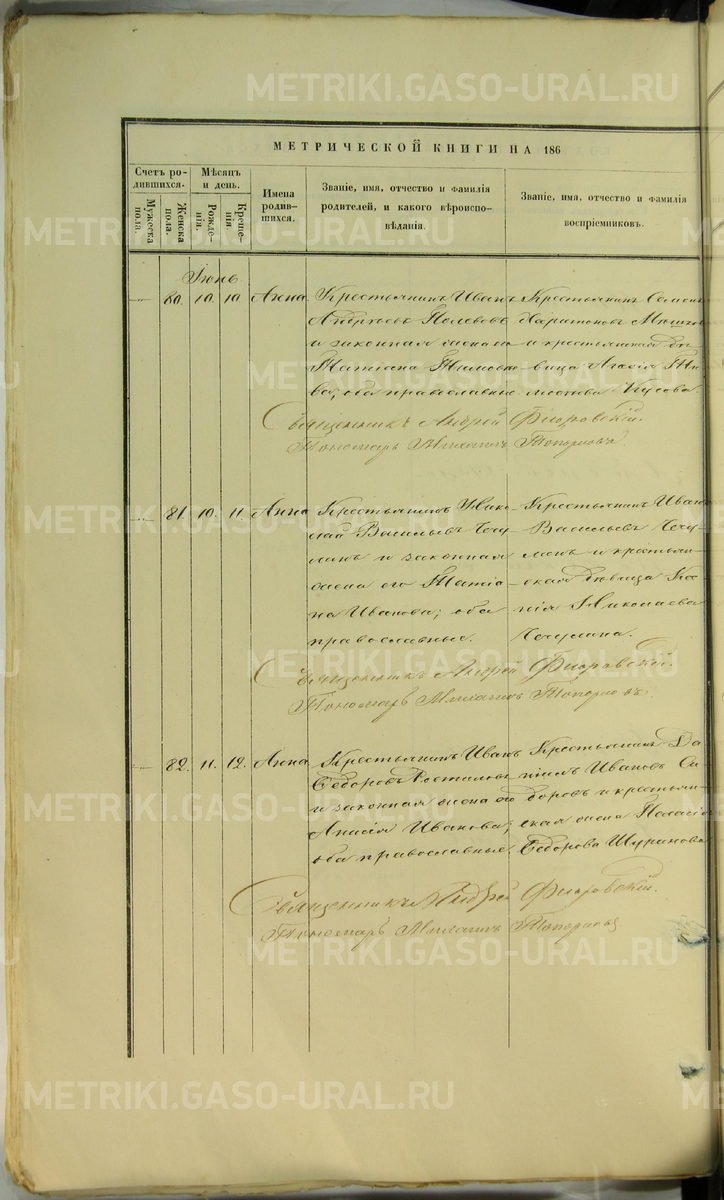 METRIKI.GASO-URAL.RU
МЕТРИЧЕСКОЙ КНИГИ НА 186
Счетъ родившихся.
Мужеска пола.
Женска пола.
Мѣсяцъ и день.
Рожденія.
Крещенія.
Имена родившихся.
Званіе, имя, отчество и фамилія родителей, и какого вѣроисповѣданія.
Званіе, имя, отчество и фамилія воспріемниковъ.
Іюнь
80. 10. 10. Анна
Крестьянинъ Иванъ
Андреевъ
и законная жена его
Татіана
оба православные
Крестьянинъ Семенъ
Харитоновъ
и крестьянская дѣ
вица Агафія
Священникъ Андрей Фигровскій.
Пономарь Михаилъ Топорковъ
81. 10. 11. Анна
Крестьянинъ Нико
лай Васильевъ Чечу
линъ и законная
жена его Татіа
на Иванова; оба
православные.
Крестьянинъ Иванъ
Васильевъ Чечу
линъ и крестьян
ская дѣвица Ксе
нія Николаева
Чечулина.
Священникъ Андрей Фигровскій.
Пономарь Михаилъ Топорковъ
82. 11. 12. Анна
Крестьянинъ Иванъ
Ѳедоровъ
и законная жена его
Иванова;
оба православные.
Крестьянинъ Да
ніилъ Ивановъ Си
доровъ и крестьян
ская жена Пелагія
Ѳедорова
Священникъ Андрей Фигровскій.
Пономарь Михаилъ Топорковъ
METRIKI.GASO-URAL.RU